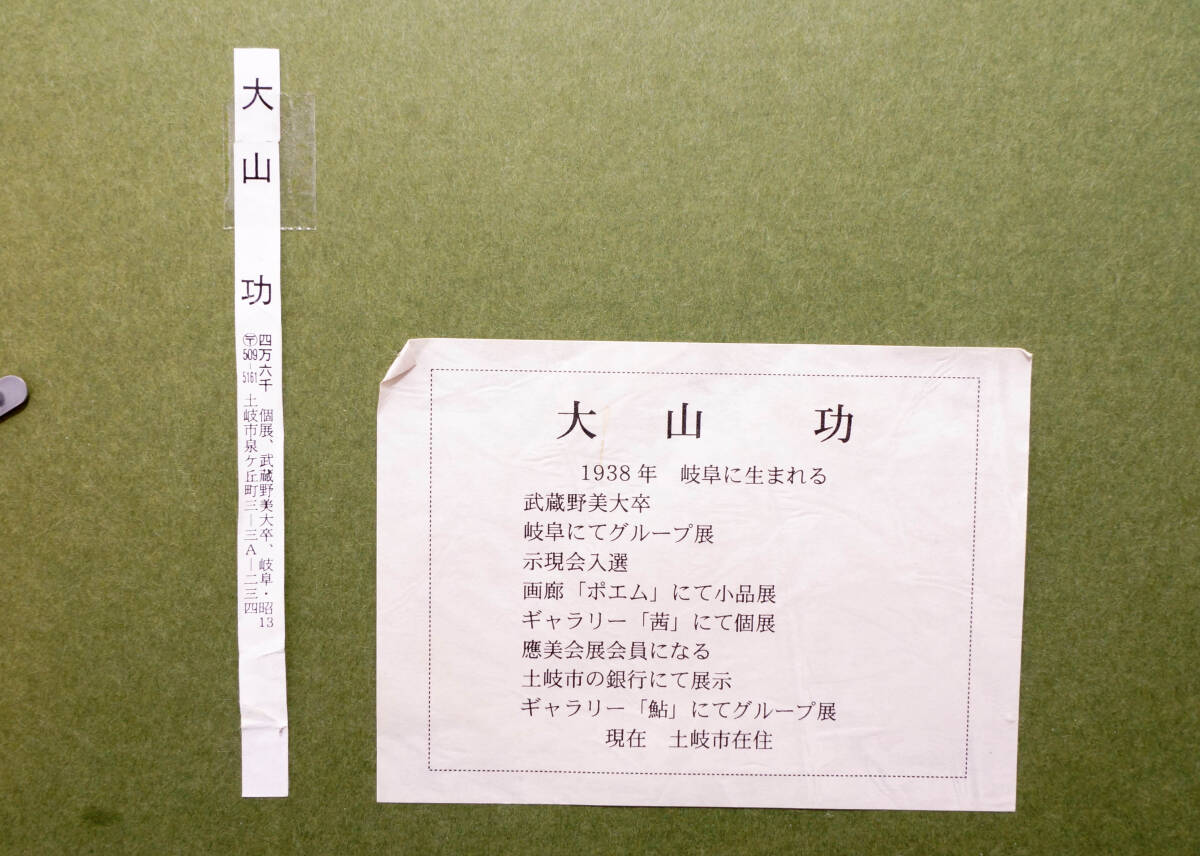 大山 功
四万六千 個展、武蔵野美大卒、岐阜・昭13
〒509-5161 土岐市泉ケ丘町三―三A―二三四
大山 功
1938年 岐阜に生まれる
武蔵野美大卒
岐阜にてグループ展
示現会入選
画廊「ポエム」にて小品展
ギャラリー「茜」にて個展
應美会展会員になる
土岐市の銀行にて展示
ギャラリー「鮎」にてグループ展
現在 土岐市在住